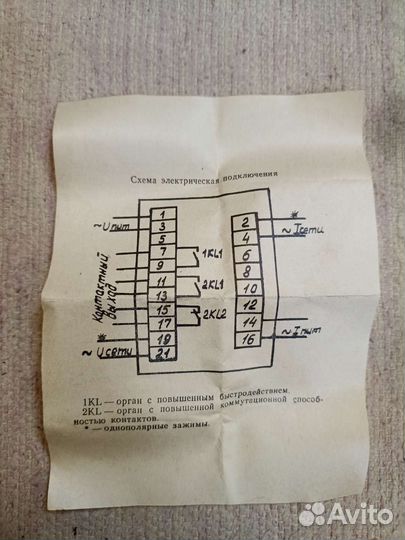 Схема электрическая подключения
1
~ Uпит
3
5
7
1KL1
9
11
2KL1
13
15
2KL2
17
* 19
~ Uсети
21
Контактный
выход
2 *
~ Iсети
4
6
8
10
12
14
~ Iпит
16
1KL — орган с повышенным быстродействием.
2KL — орган с повышенной коммутационной способ-
ностью контактов.
* — однополярные зажимы.
Avito